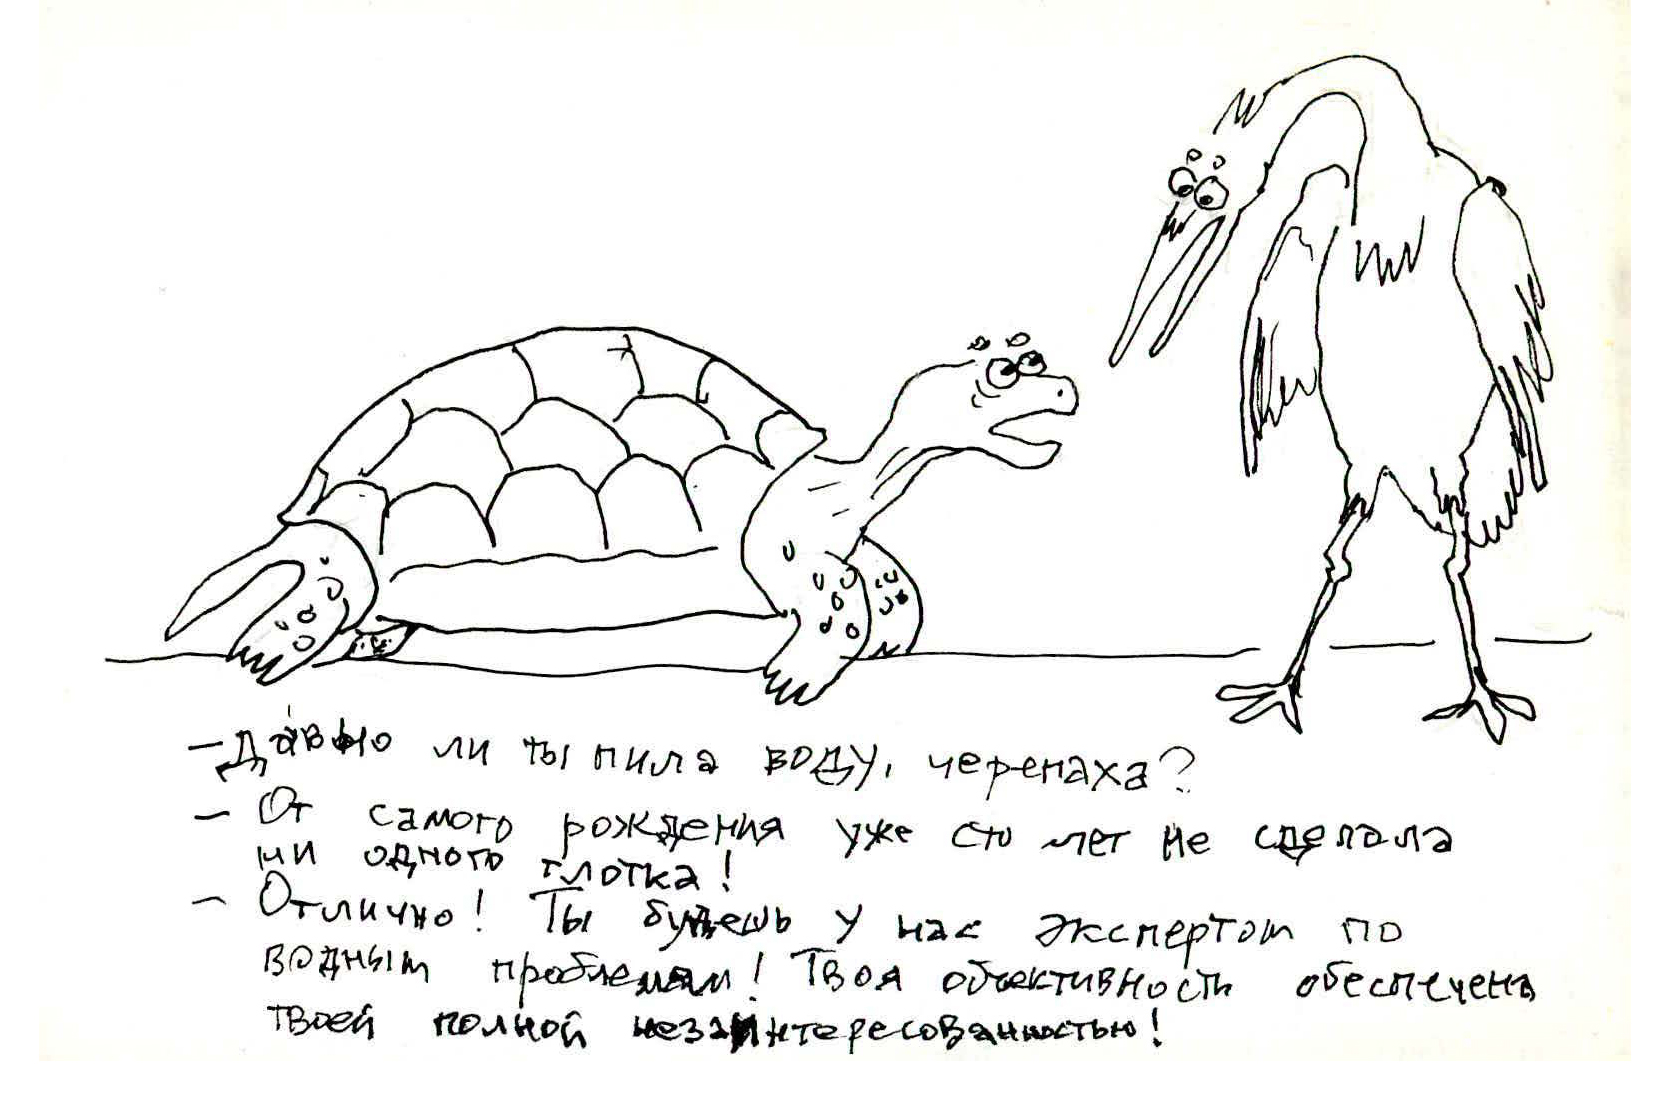 – Давно ли ты пила воду, черепаха?
– От самого рождения уже сто лет не сделала
ни одного глотка!
– Отлично! Ты будешь у нас экспертом по
водным проблемам! Твоя объективность обеспечена
твоей полной незаинтересованностью!